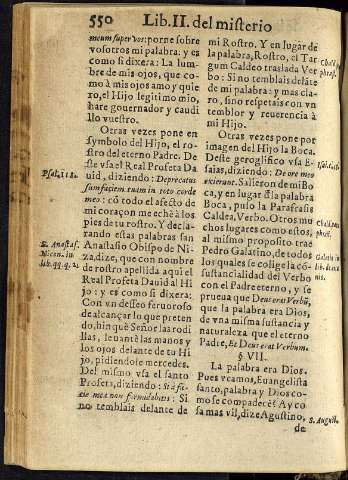 550 Lib. II. del misterio
meum super vos: pōrne sobre
vosotros mi palabra: y es
como si dixera: La lum-
bre de mis ojos, que co-
mo à mis ojos amo y quie
ro, el Hijo legitimo mio,
hare gouernador y caudi
llo vuestro.
Otras vezes pone en
symbolo del Hijo, el ro-
stro del eterno Padre. De
ste vsa el Real Profeta Da
uid, diziendo: Deprecatus
sum faciem tuam in toto corde
meo: cō todo el afecto de
mi coraçon me echè a los
pies de tu rostro. Y decla-
rando estas palabras san
Anastasio Obispo de Ni-
za, dize, que con nombre
de rostro apellida aqui el
Real Profeta Dauid al Hi
jo: y es como si dixera:
Con vn desseo feruoroso
de alcançar lo que preten
do, hinquè Señor las rodi
llas, leuantè las manos y
los ojos delante de tu Hi
jo, pidiendole mercedes.
Del mismo vsa el santo
Profeta, diziendo: Si à fa-
cie mea non formidabitis: Si
no temblais delante de
Psal. 118.
S. Anastas.
Nicen. in
lib. qq. q. 2.
mi Rostro. Y en lugar de
la palabra, Rostro, el Tar
gum Caldeo traslada Ver
bo: Si no temblais delāte
de mi palabra: y mas cla-
ro, sino respetais con vn
temblor y reuerencia à
mi Hijo.
Otras vezes pone por
imagen del Hijo la Boca.
Deste geroglifico vsa E-
saias, diziendo: De ore meo
exierunt. Salieron de mi Bo
ca, y en lugar de la palabra
Boca, puso la Parafrasis
Caldea, Verbo. Otros mu
chos lugares como estos,
al mismo proposito trae
Pedro Galatino, de todos
los quales se colige la cō-
sustancialidad del Verbo
con el Padre eterno, y se
prueua que Deus erat Verbū,
que la palabra era Dios,
de vna misma sustancia y
naturaleza que el eterno
Padre, Et Deus erat Verbum.
§. VII.
La palabra era Dios.
Pues veamos, Euangelista
santo, palabra y Dios co-
mo se compadecē? A y co
sa mas vil, dize Agustino,
de
S. August.